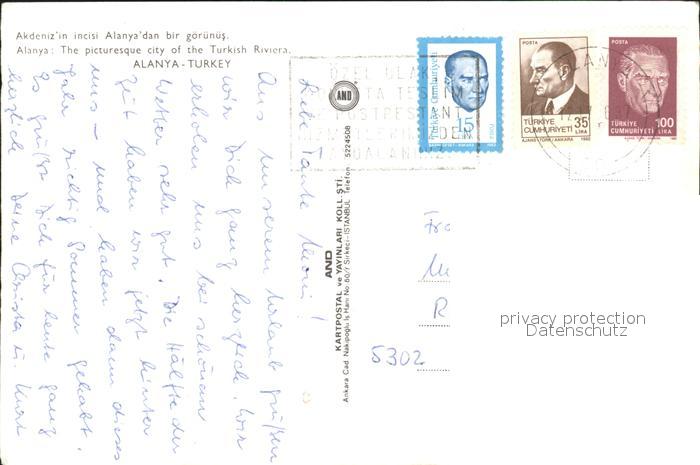 Akdeniz'in incisi Alanya'dan bir görünüş.
Alanya: The picturesque city of the Turkish Riviera.
ALANYA - TURKEY
ÖZEL ULAK
POSTRESTANT
AND
Türkiye Cumhuriyeti
15
LİRA
POSTA
TÜRKİYE
CUMHURİYETİ
35
LİRA
AJANS-TÜRK/ANKARA 1982
POSTA
TÜRKİYE
CUMHURİYETİ
100
LİRA
AND
KARTPOSTAL ve YAYINLARI KOLL. ŞTİ.
Ankara Cad. Nakipoğlu İş Hanı No 60/7 Sirkeci-İSTANBUL Telefon 5224508
Liebe Tante
Aus unserem Urlaub grüßen
wir Dich ganz herzlich. Wir
erholen uns bei schönem
Wetter sehr gut. Die Hälfte der
Zeit haben wir jetzt hinter
uns - und haben dann dieses
Jahr richtig Sommer gehabt.
Es grüßt Dich für heute ganz
herzlich Deine u.
5302
privacy protection
Datenschutz